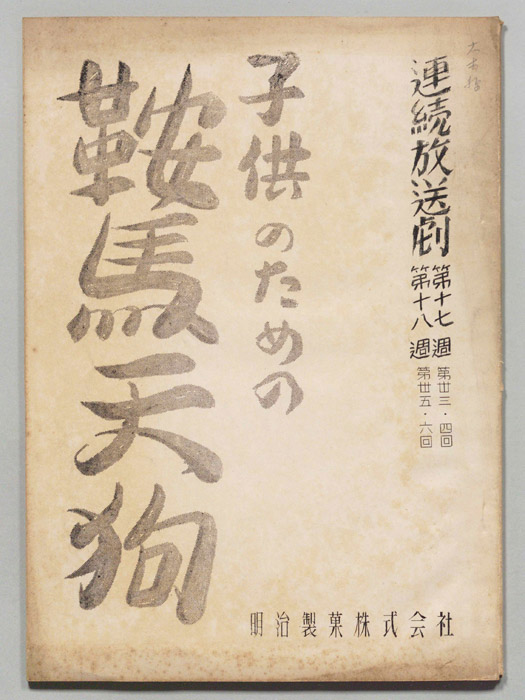 連続放送劇
第十七週 第丗三・四回
第十八週 第丗五・六回
子供のための
鞍馬天狗
明治製菓株式会社